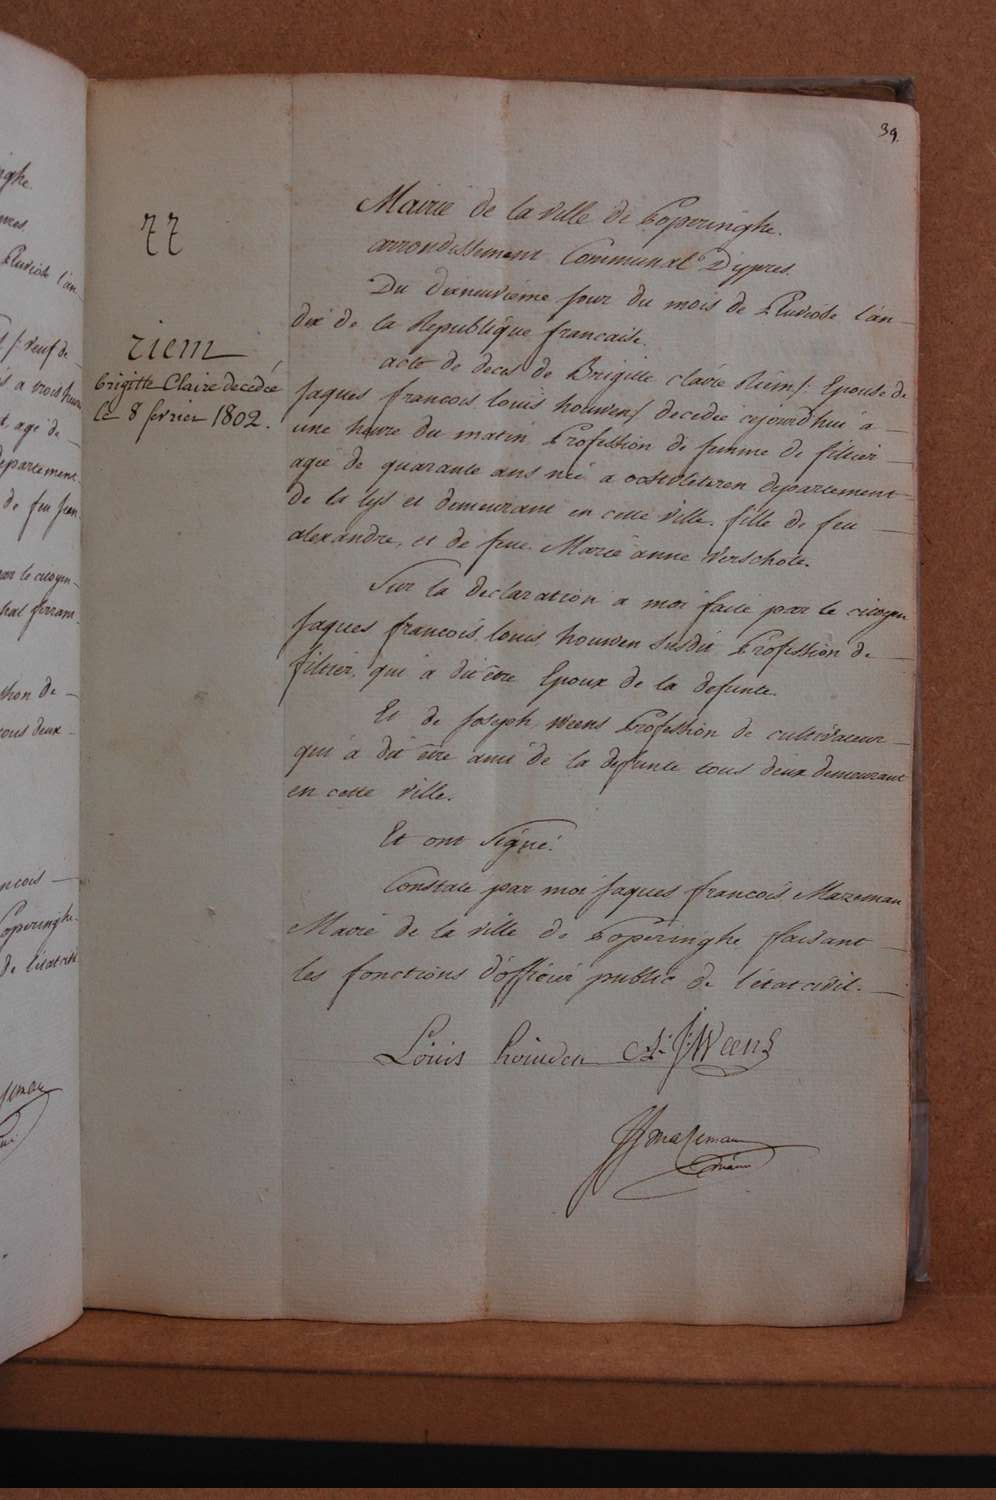 39.
77
riem
brigitte Claire decedée
le 8 fevrier 1802.
Mairie de la ville de Poperinghe.
arrondissement Communal D'ypres.
Du dixneuvieme jour du mois de Pluviose l'an
dix de la Republique francaise.
acte de deces de Brigitte claire Riem /: Epouse de
Jaques francois louis houwen / decedée cejourdhui a
une heure du matin Profession de femme de filtier
agée de quarante ans née a oostvleteren departement
de la lys et demeurant en cette ville. fille de feu
alexandre, et de feue Marie anne Verschote.
Sur la declaration a moi faite par le citoyen
Jaques francois louis houwen susdit Profession de
filtier, qui a dit être Epoux de la defunte.
Et de Joseph Weens Profession de cultivateur
qui a dit être ami de la defunte tous deux demeurant
en cette ville.
Et ont Signé.
Constaté par moi Jaques francois Mazeman
Maire de la ville de Poperinghe faisant
les fonctions d'officier public de l'état civil.
Louis houwen J: Weens
JJ mazeman
maire